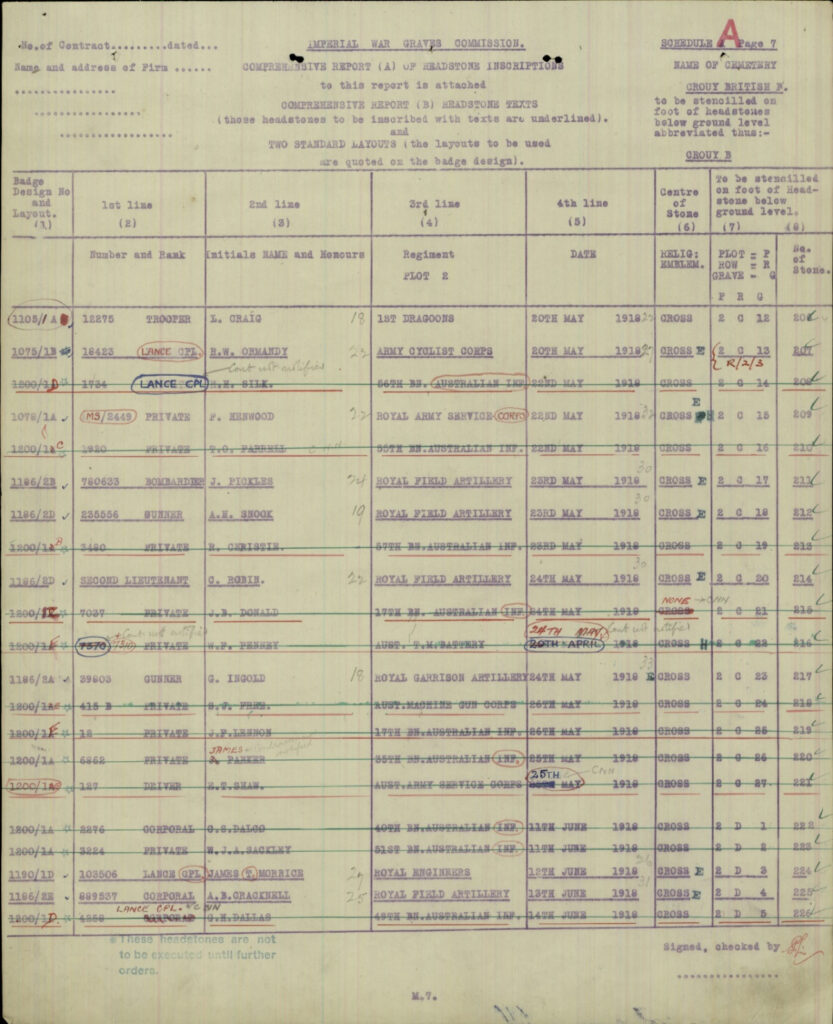 No. of Contract.........dated...
IMPERIAL WAR GRAVES COMMISSION.
SCHEDULE A Page 7
Name and address of Firm ......
COMPREHENSIVE REPORT (A) OF HEADSTONE INSCRIPTIONS
NAME OF CEMETERY
to this report is attached
CROUY BRITISH
COMPREHENSIVE REPORT (B) HEADSTONE TEXTS
to be stencilled on
(those headstones to be inscribed with texts are underlined).
foot of headstones
below ground level
and
abbreviated thus:-
TWO STANDARD LAYOUTS (the layouts to be used
are quoted on the badge design).
CROUY B
Badge Design No and Layout. (1) 1st line (2) 2nd line (3) 3rd line (4) 4th line (5) Centre of Stone (6) To be stencilled on foot of Head-stone below ground level. (7) (8)
Number and Rank Initials NAME and Honours Regiment DATE RELIG: EMBLEM. PLOT = P ROW = R GRAVE = G No. of Stone.
PLOT 2
P R G
1105/1A 12275 TROOPER L. CRAIG 18 1ST DRAGOONS 20TH MAY 1918 CROSS 2 C 12
1075/1B 18423 LANCE CPL. R.W. ORMANDY 23 ARMY CYCLIST CORPS 20TH MAY 1918 CROSS E 2 C 13 207
R/2/3
Cont not notified
1200/1D 1734 LANCE CPL H.H. SILK. 56TH BN. AUSTRALIAN INF. 22ND MAY 1918 CROSS 2 C 14 208
1078/1A MS/2449 PRIVATE F. HENWOOD 22 ROYAL ARMY SERVICE CORPS 22ND MAY 1918 CROSS E 2 C 15 209
1200/1A C 1920 PRIVATE T.O. FARRELL 55TH BN. AUSTRALIAN INF. 22ND MAY 1918 CROSS 2 C 16 210
1186/2B 780633 BOMBARDIER J. PICKLES 24 ROYAL FIELD ARTILLERY 23RD MAY 1918 30 CROSS E 2 C 17 211
1186/2D 235556 GUNNER A.H. SNOOK 19 ROYAL FIELD ARTILLERY 23RD MAY 1918 30 CROSS E 2 C 18 212
1200/1A B 3480 PRIVATE R. CHRISTIE. 57TH BN. AUSTRALIAN INF. 23RD MAY 1918 CROSS 2 C 19 213
1186/2D SECOND LIEUTENANT C. ROBIN. 22 ROYAL FIELD ARTILLERY 24TH MAY 1918 30 CROSS E 2 C 20 214
1200/1E 7037 PRIVATE J.B. DONALD 17TH BN. AUSTRALIAN INF. 24TH MAY 1918 CROSS NONE 2 C 21 215
1200/1E 7570 PRIVATE W.F. PENSEY AUST. T.M. BATTERY 20TH APRIL 24TH MAY. 1918 CROSS H 2 C 22 216
Cont. not notified
1186/2A 39803 GUNNER G. INGOLD 18 ROYAL GARRISON ARTILLERY 24TH MAY 1918 33 E CROSS 2 C 23 217
1200/1A 415 B PRIVATE S.J. FREE. AUST. MACHINE GUN CORPS 26TH MAY 1918 CROSS 2 C 24 218
1200/1E 12 PRIVATE J.F. LENNON 17TH BN. AUSTRALIAN INF. 26TH MAY 1918 CROSS 2 C 25 219
1200/1A 6862 PRIVATE JAMES PARKER 35TH BN. AUSTRALIAN INF. 25TH MAY 1918 CROSS 2 C 26 220
1200/1A 127 DRIVER E.T. SHAW. AUST. ARMY SERVICE CORPS 25TH MAY 1918 CROSS 2 C 27. 221
1200/1A 2276 CORPORAL C.S. DALCO 40TH BN. AUSTRALIAN INF. 11TH JUNE 1918 CROSS 2 D 1 222
1200/1A 3224 PRIVATE W.J.A. SACKLEY 51ST BN. AUSTRALIAN INF. 11TH JUNE 1918 CROSS 2 D 2 223
1190/1D 103506 LANCE CPL JAMES T. MORRICE ROYAL ENGINEERS 12TH JUNE 1918 CROSS E 2 D 3 224
1186/2E 889537 CORPORAL A.B. CRACKNELL 25 ROYAL FIELD ARTILLERY 13TH JUNE 1918 CROSS E 2 D 4 225
1200/1D. 4258 CORPORAL LANCE CPL. G.H. DALLAS 49TH BN. AUSTRALIAN INF. 14TH JUNE 1918 CROSS 2 D 5 226
These headstones are not
to be executed until further
orders.
Signed, checked by
M.7.